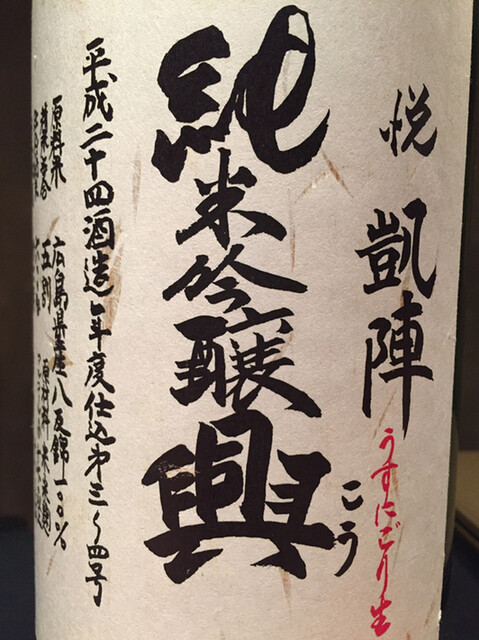 悦 凱陣
うすにごり生
純米吟醸 興
こう
平成二十四酒造年度仕込第三〜四号
原料米 広島県産八反錦一〇〇%
精米歩合 五割 原材料 米 米麹